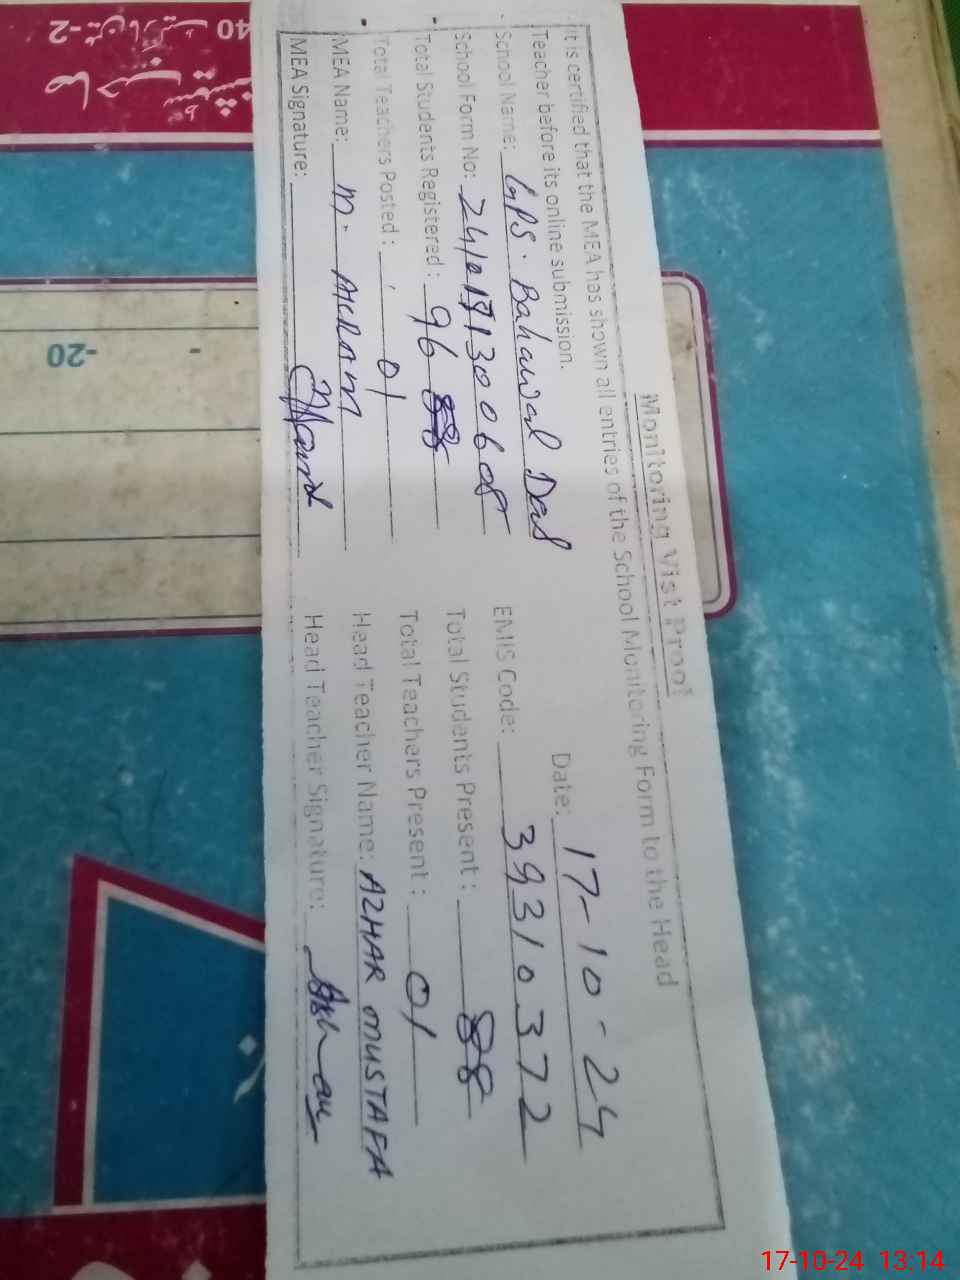 Monitoring Vist Proof
It is certified that the MEA has shown all entries of the School Monitoring Form to the Head
Teacher before its online submission. Date: 17-10-24
School Name: GPS. Bahawal Das EMIS Code: 39310372
School Form No:
Total Students Registered: 96 Total Students Present: 88
Total Teachers Posted: 01 Total Teachers Present: 01
MEA Name: M. AKRAM Head Teacher Name: AZHAR MUSTAFA
MEA Signature: Head Teacher Signature:
-20
17-10-24 13:14